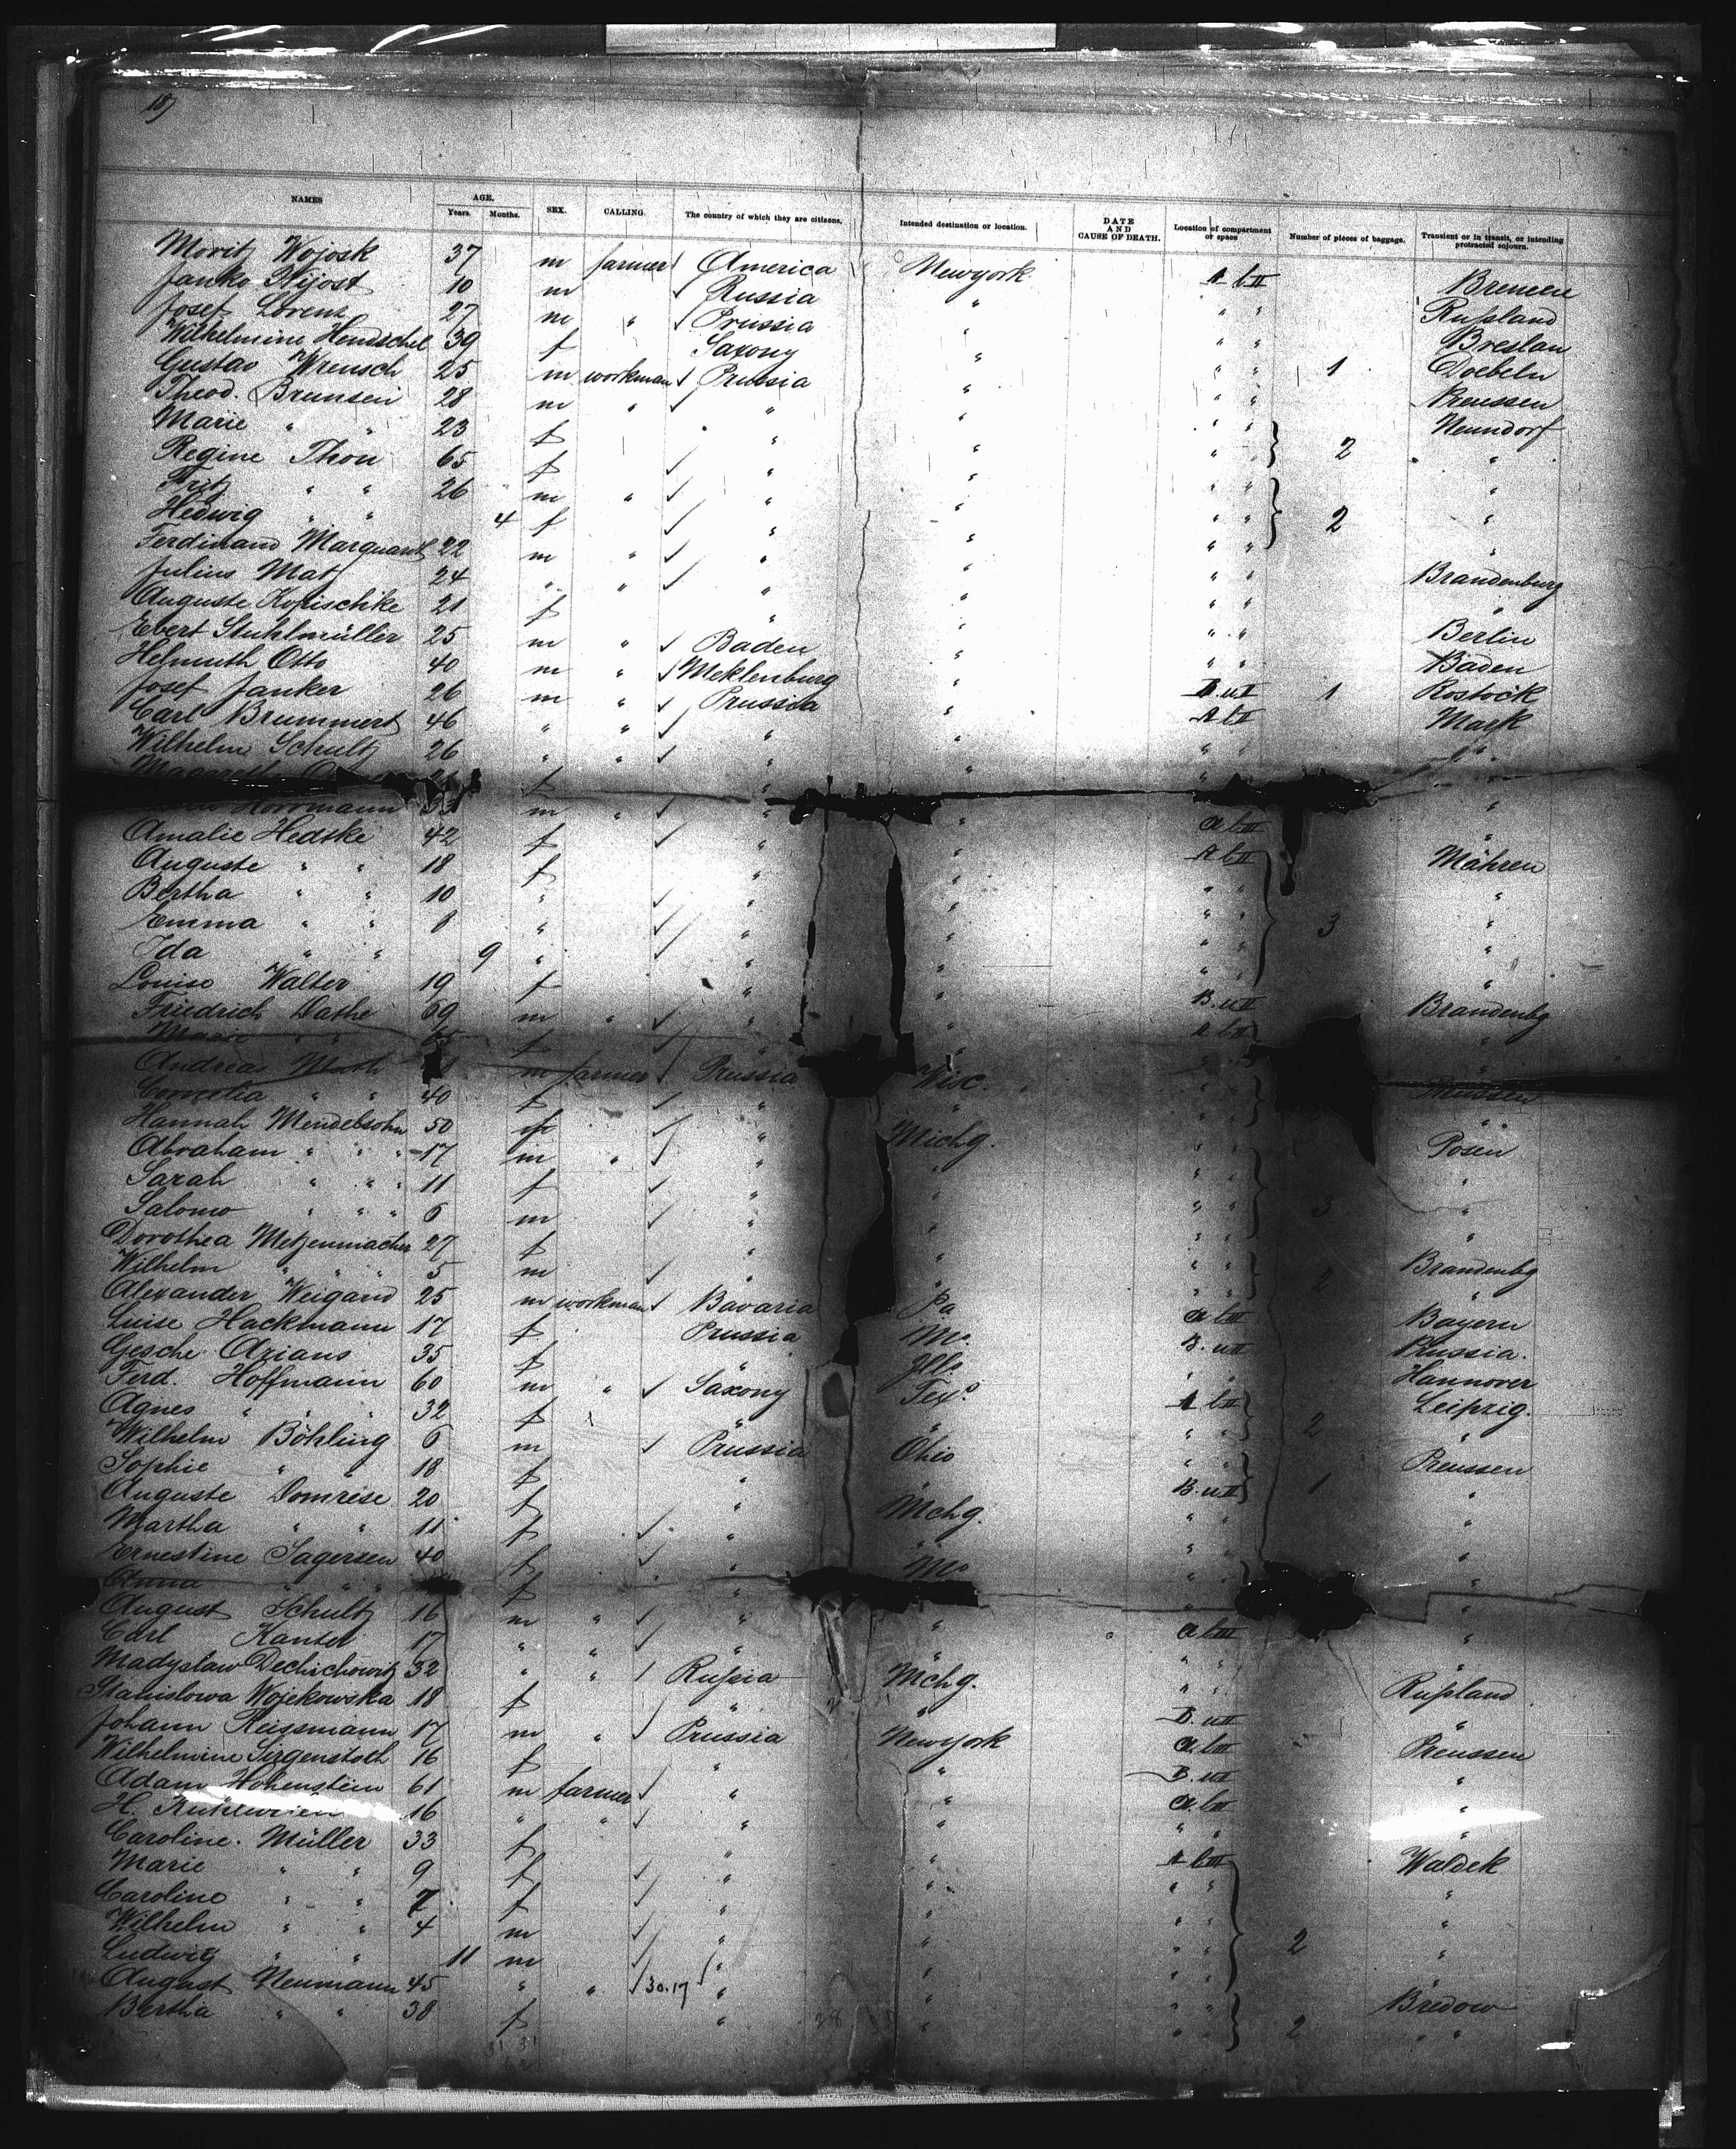 187
NAMES AGE. Years. Months. SEX. CALLING. The country of which they are citizens. Intended destination or location. DATE AND CAUSE OF DEATH. Location of compartment or space Number of pieces of baggage. Transient or in transit, or intending protracted sojourn.
Moritz Wojosk 37 m farmer America Newyork A b II Bremen
Janko Nijost 10 m Russia " " " Rußland
Josef Lorenz 27 m " Prussia " " " Breslau
Wilhelmine Hendschel 39 f Saxony " " " 1 Doebeln
Gustav Wrensch 25 m workman Prussia " " " Preussen
Theod. Brunsen 28 m " " " " " Neundorf
Marie " " 23 f " " " " 2 "
Regine Thon 65 f " " " " "
Fritz " " 26 m " " " " " 2 "
Hedwig " " 4 f " " " " "
Ferdinand Marquardt 22 m " " " " " Brandenburg
Julius Matz 24 " " " " " " "
Auguste Kopischke 21 f " " " " Berlin
Ebert Stuhlmüller 25 m " Baden " " " Baden
Helmuth Otto 40 m " Meklenburg " B. u II 1 Rostock
Josef Janker 26 m " Prussia " A b II Mark
Carl Brummert 46 " " " " " "
Wilhelm Schultz 26 " " " "
Horrmann m " " " a b III "
Amalie Hedtke 42 f " " A b II Mähren
Auguste " " 18 f " " " " "
Bertha " " 10 " " " " " 3 "
Emma " " 8 " " " " " "
Ida " " 9 " " " " " "
Louise Walter 19 f " " B. u II Brandenbg
Friedrich Dathe 69 m " " " A b II "
Marie " " f " " " "
Andreas m farmer Prussia Wisc. " " Preussen
Cornelia " " 40 f " " " " "
Hannah Mendelsohn 50 f " Michg. " " Posen
Abraham " " 17 m " " " " " "
Sarah " " 11 f " " " " 3 "
Salomo " " 6 m " " " " "
Dorothea Metzenmacher 27 f " " " " Brandenbg
Wilhelm " " 5 m " " " " 2 "
Alexander Weigand 25 m workman Bavaria Pa a b III Bayern
Luise Hackmann 17 f Prussia Mo. B. u II Prussia.
Gesche Arians 35 f " Ills " " Hannover
Ferd. Hoffmann 60 m " Saxony Tex. A b II Leipzig.
Agnes " " 32 f " " " " 2 "
Wilhelm Böhling 6 m Prussia Ohio " " Preussen
Sophie " " 18 f " " B. u II 1 "
Auguste Domrese 20 f " Mchg. " " "
Martha " " 11 f " " " " "
Ernestine Sagersen 40 f " Mo " " "
Anna " " f " " " "
August Schultz 16 m " " " a b III "
Carl Kanter 17 " " " " " " "
Madyslaw Dechichowitz 32 " " Rußia Mchg. " " Rußland
Stanislowa Wojekowska 18 f " " B. u II "
Johann Reissmann 17 m " Prussia Newyork a b III Preussen
Wilhelmine Sirgenstoch 16 f " " B. u II "
Adam Hohenstein 61 m farmer " " a b III "
H. 16 " " " " " " "
Caroline Müller 33 f " " A b II Waldek
Marie " " 9 f " " " " "
Caroline " " 7 f " " " " "
Wilhelm " " 4 m " " " " 2 "
Ludwig " " 11 m " " " " "
August Neumann 45 " " 30.17 " " " " Bredow
Bertha " " 38 f " 28 " " " 2 " "